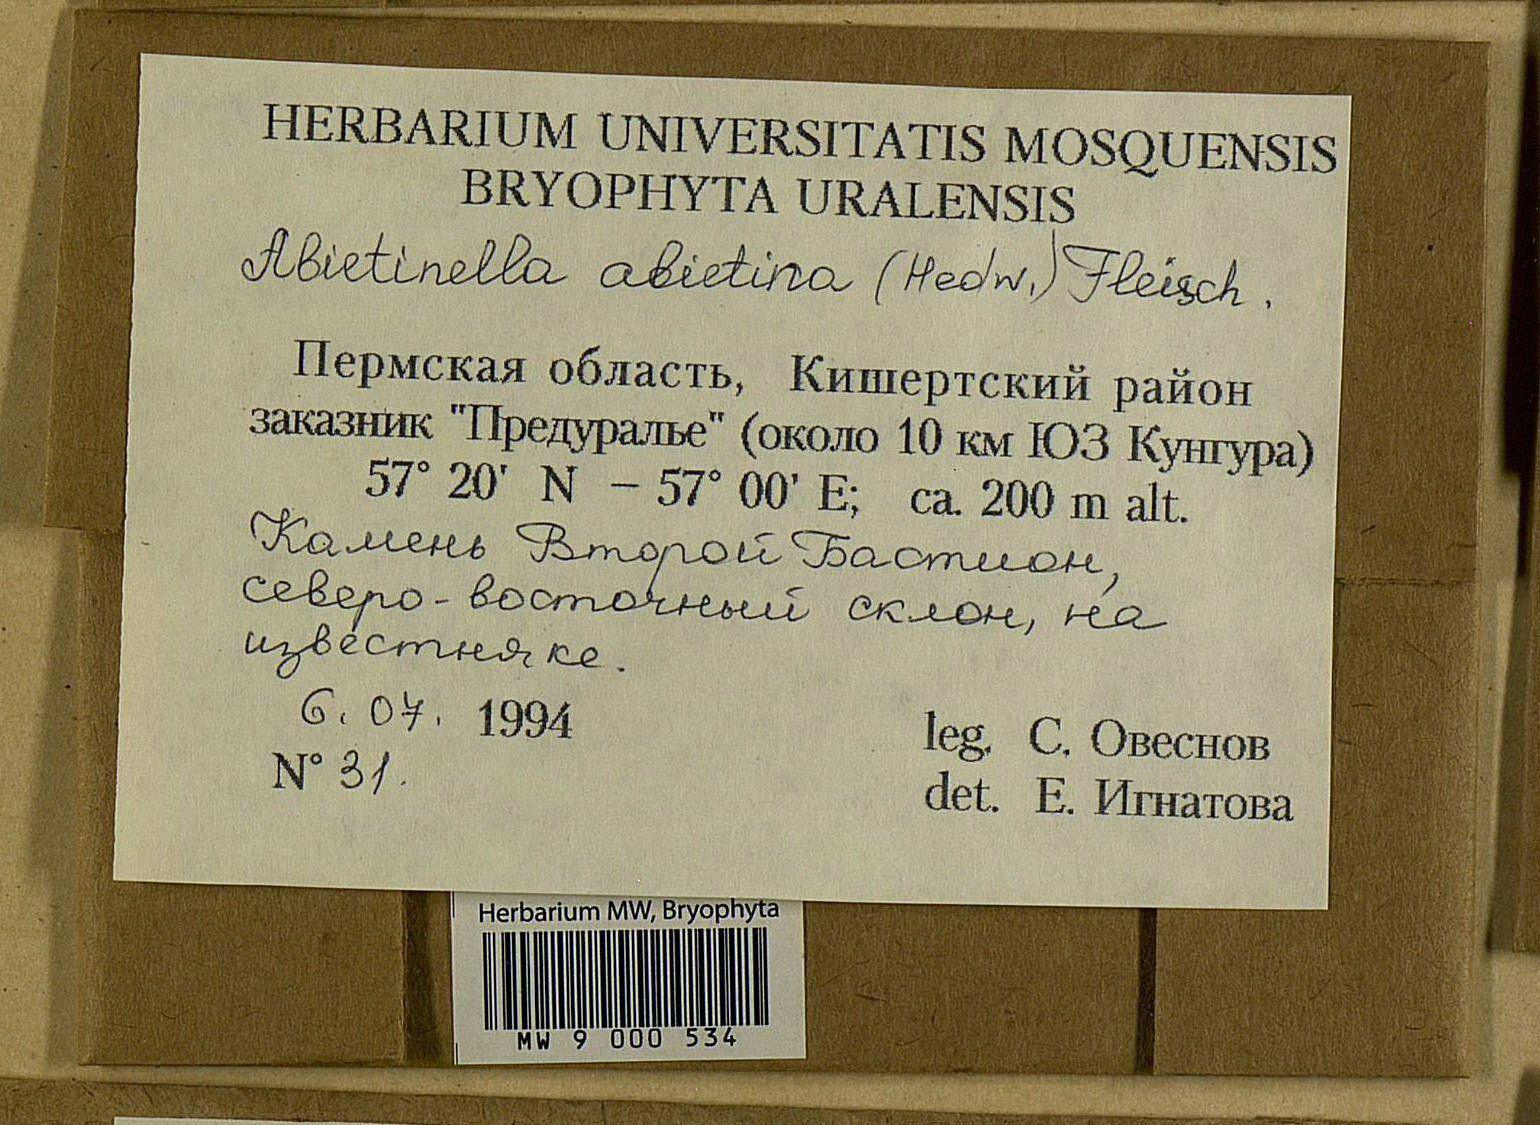 HERBARIUM UNIVERSITATIS MOSQUENSIS
BRYOPHYTA URALENSIS
Abietinella abietina (Hedw.) Fleisch.
Пермская область, Кишертский район
заказник "Предуралье" (около 10 км ЮЗ Кунгура)
57° 20' N – 57° 00' E; ca. 200 m alt.
Камень Второй Бастион,
северо-восточный склон, на
известняке.
6. 07. 1994
leg. С. Овеснов
N° 31.
det. Е. Игнатова
Herbarium MW, Bryophyta
MW 9 000 534